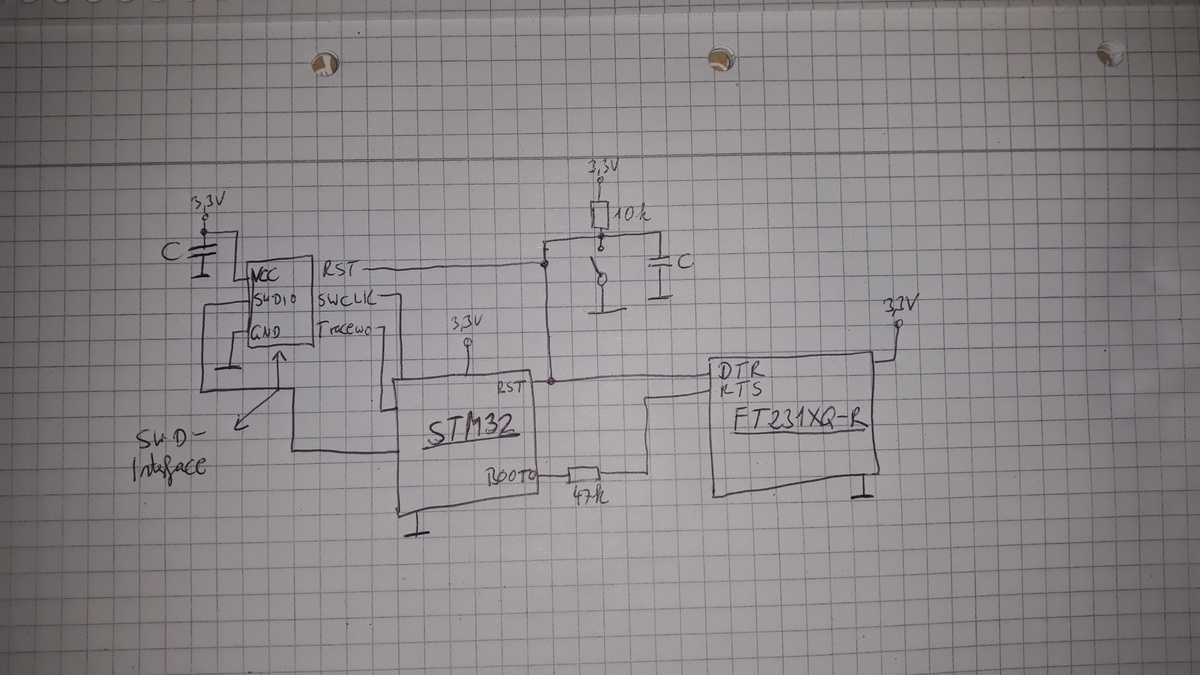 3,3V
10k
3,3V
C
C
VCC
RST
SWDIO
SWCLK
GND
3,3V
3,3V
RST
DTR
RTS
STM32
FT231XQ-R
SWD-
Interface
BOOT0
47k